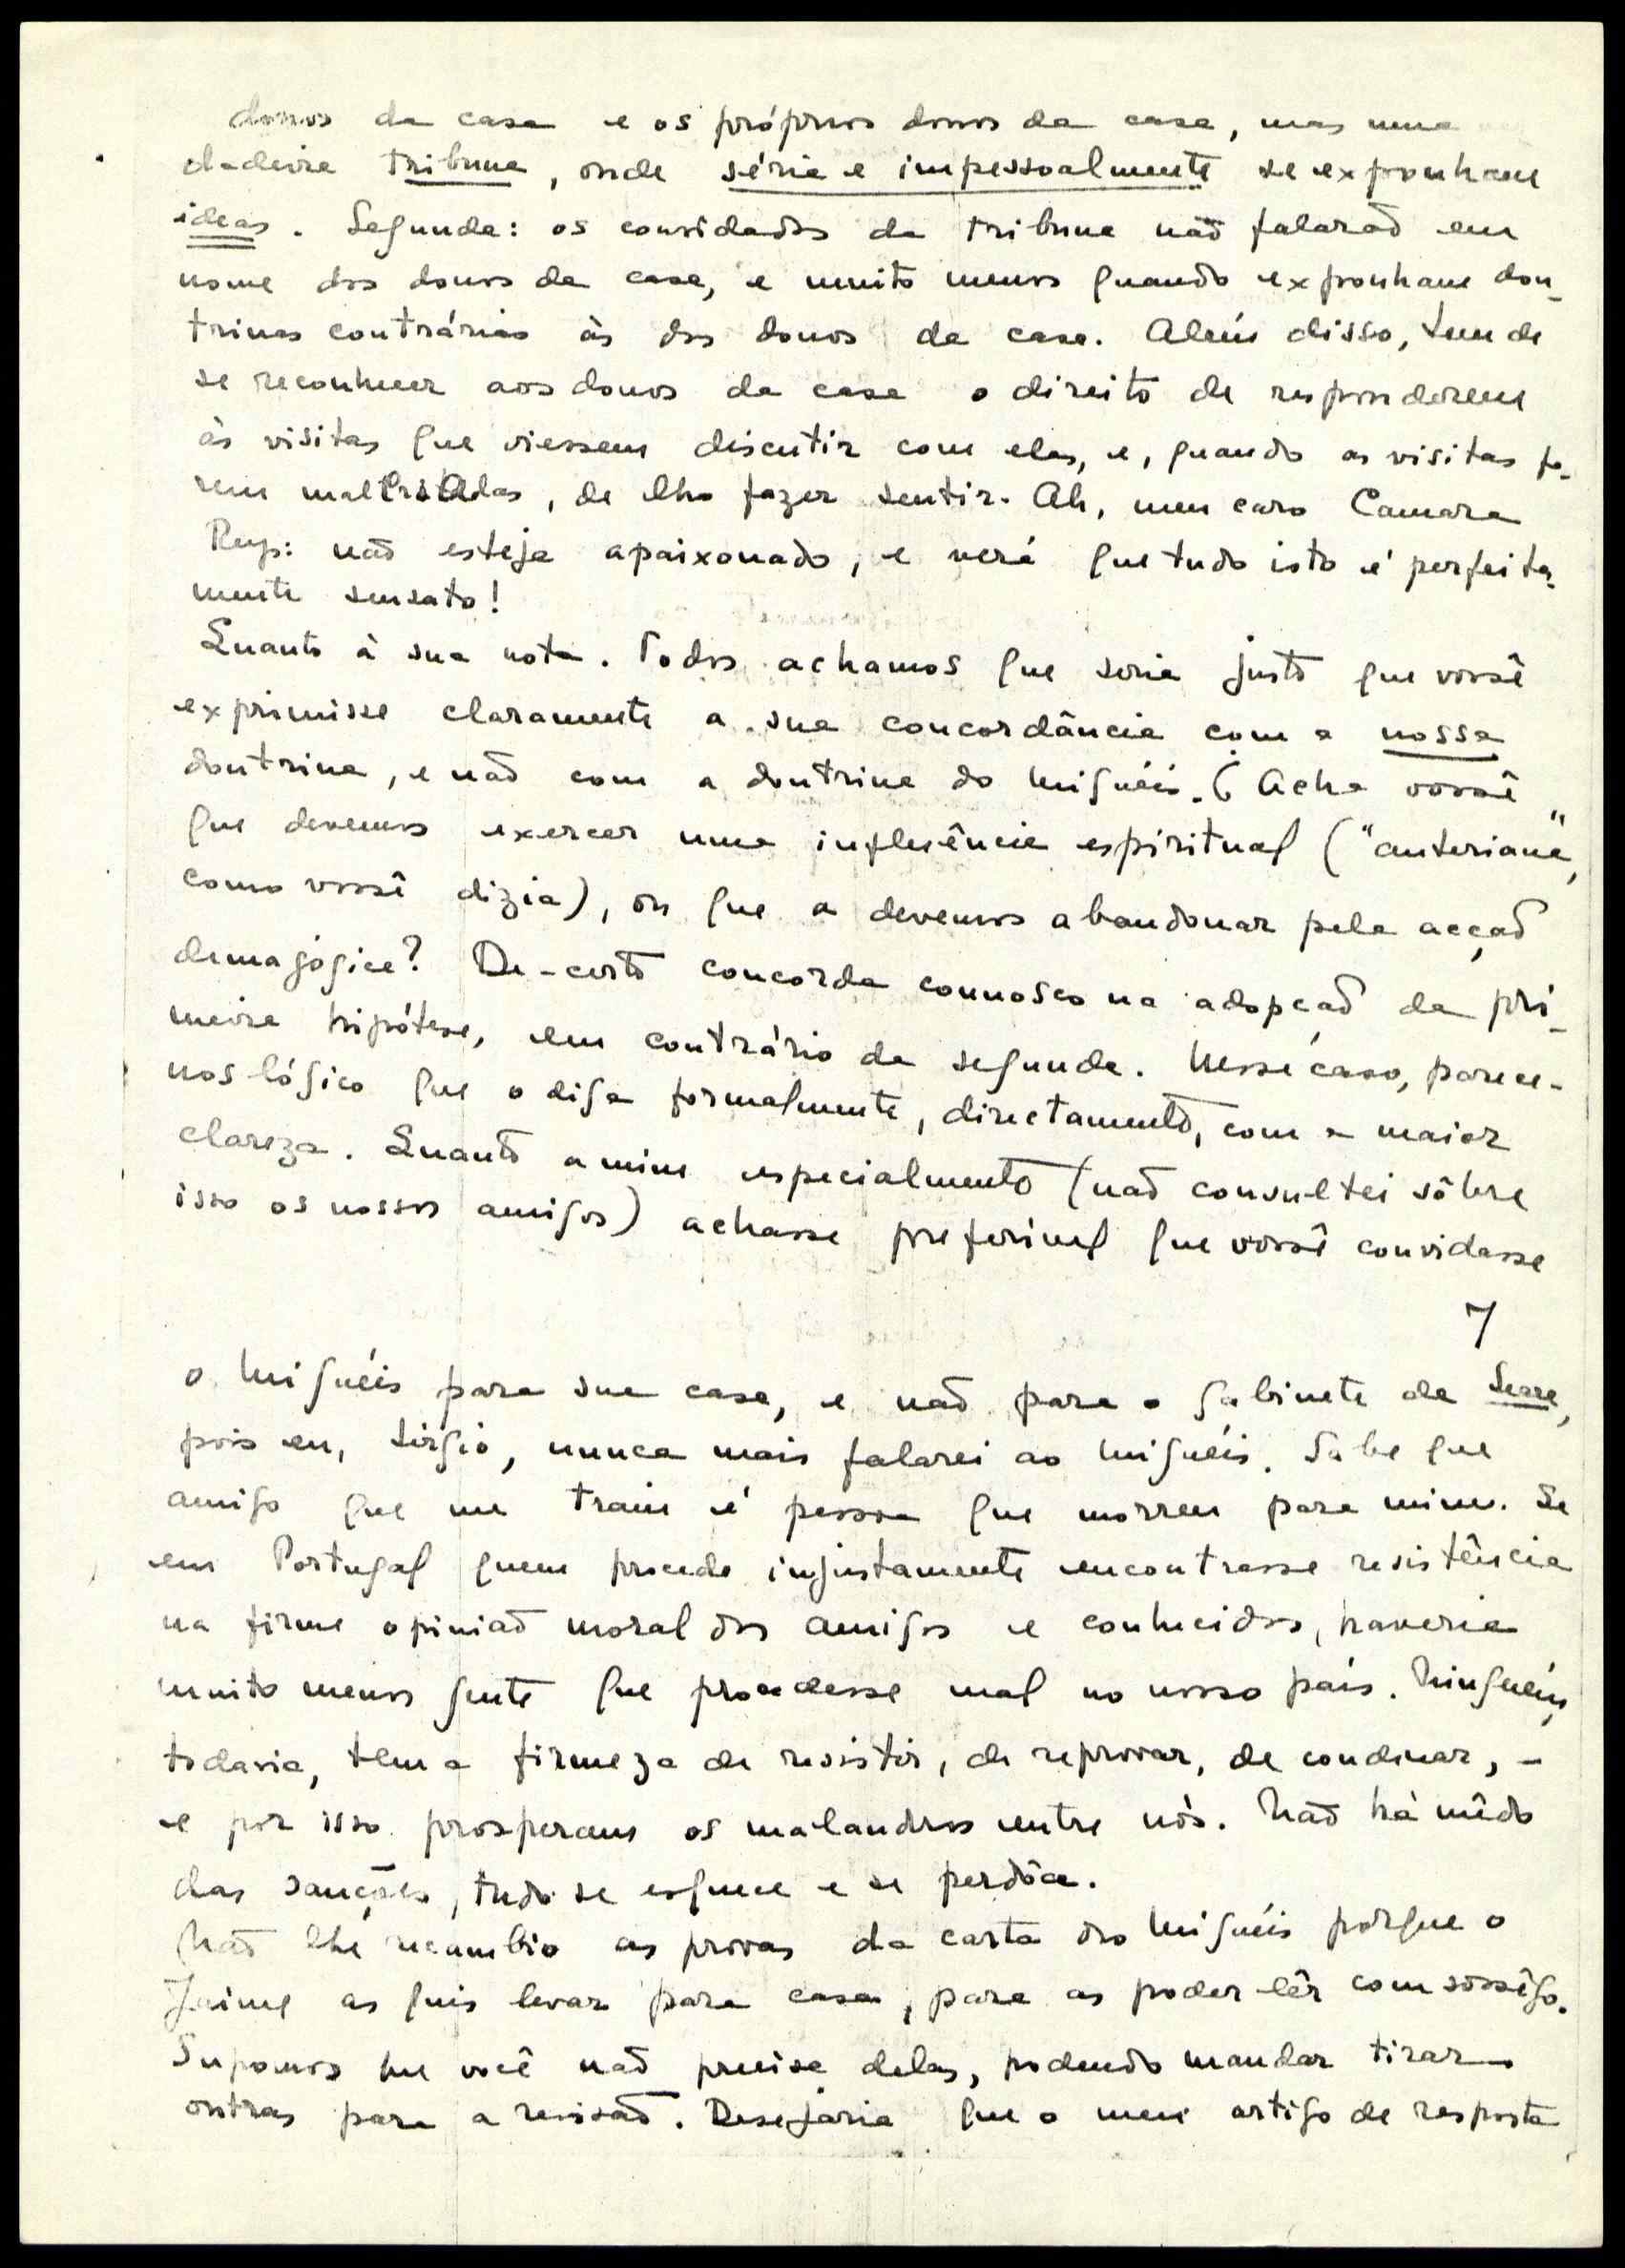 donos da casa e os próprios donos da casa, mas uma
dadeira tribuna, onde séria e impessoalmente se exponham
ideas. Segunda: os convidados da tribuna não falarão em
nome dos donos da casa, e muito menos quando exponham dou-
trinas contrárias às dos donos da casa. Além disso, tem de
se reconhecer aos donos da casa o direito de responderem
às visitas que viessem discutir com elas, e, quando as visitas fo-
rem malcriadas, de lho fazer sentir. Ah, meu caro Camara
Reys: não esteja apaixonado, e verá que tudo isto é perfeita-
mente sensato!
Quanto à sua nota. Todos achamos que seria justo que vossê
exprimisse claramente a sua concordância com a nossa
doutrina, e não com a doutrina do Miguéis. Acha vossê
que devemos exercer uma influência espiritual ("anteriana",
como vossê dizia), ou que a devemos abandonar pela acção
demagógica? De-certo concorda connosco na adopção da pri-
meira hipótese, em contrário da segunda. Nesse caso, parece-
nos lógico que o diga formalmente, directamente, com a maior
clareza. Quanto a mim especialmente (não consultei sôbre
isso os nossos amigos) achasse preferivel que vossê convidasse
7
o Miguéis para sua casa, e não para o gabinete da Seara,
pois eu, Sérgio, nunca mais falarei ao Miguéis. Sabe que
amigo que me traiu é pessoa que morreu para mim. Se
em Portugal quem procede injustamente encontrasse resistência
na firme opinião moral dos amigos e conhecidos, haveria
muito menos gente que procedesse mal no nosso país. Ninguém,
todavia, tem a firmeza de resistir, de reprovar, de condenar, -
e por isso prosperam os malandros entre nós. Não há mêdo
das sanções, tudo se esquece e se perdôa.
Não lhe recambio as provas da carta do Miguéis porque o
Jaime as quis levar para casa, para as poder lêr com sossêgo.
Supomos que você não precisa delas, podendo mandar tirar
outras para a revisão. Desejaria que o meu artigo de resposta